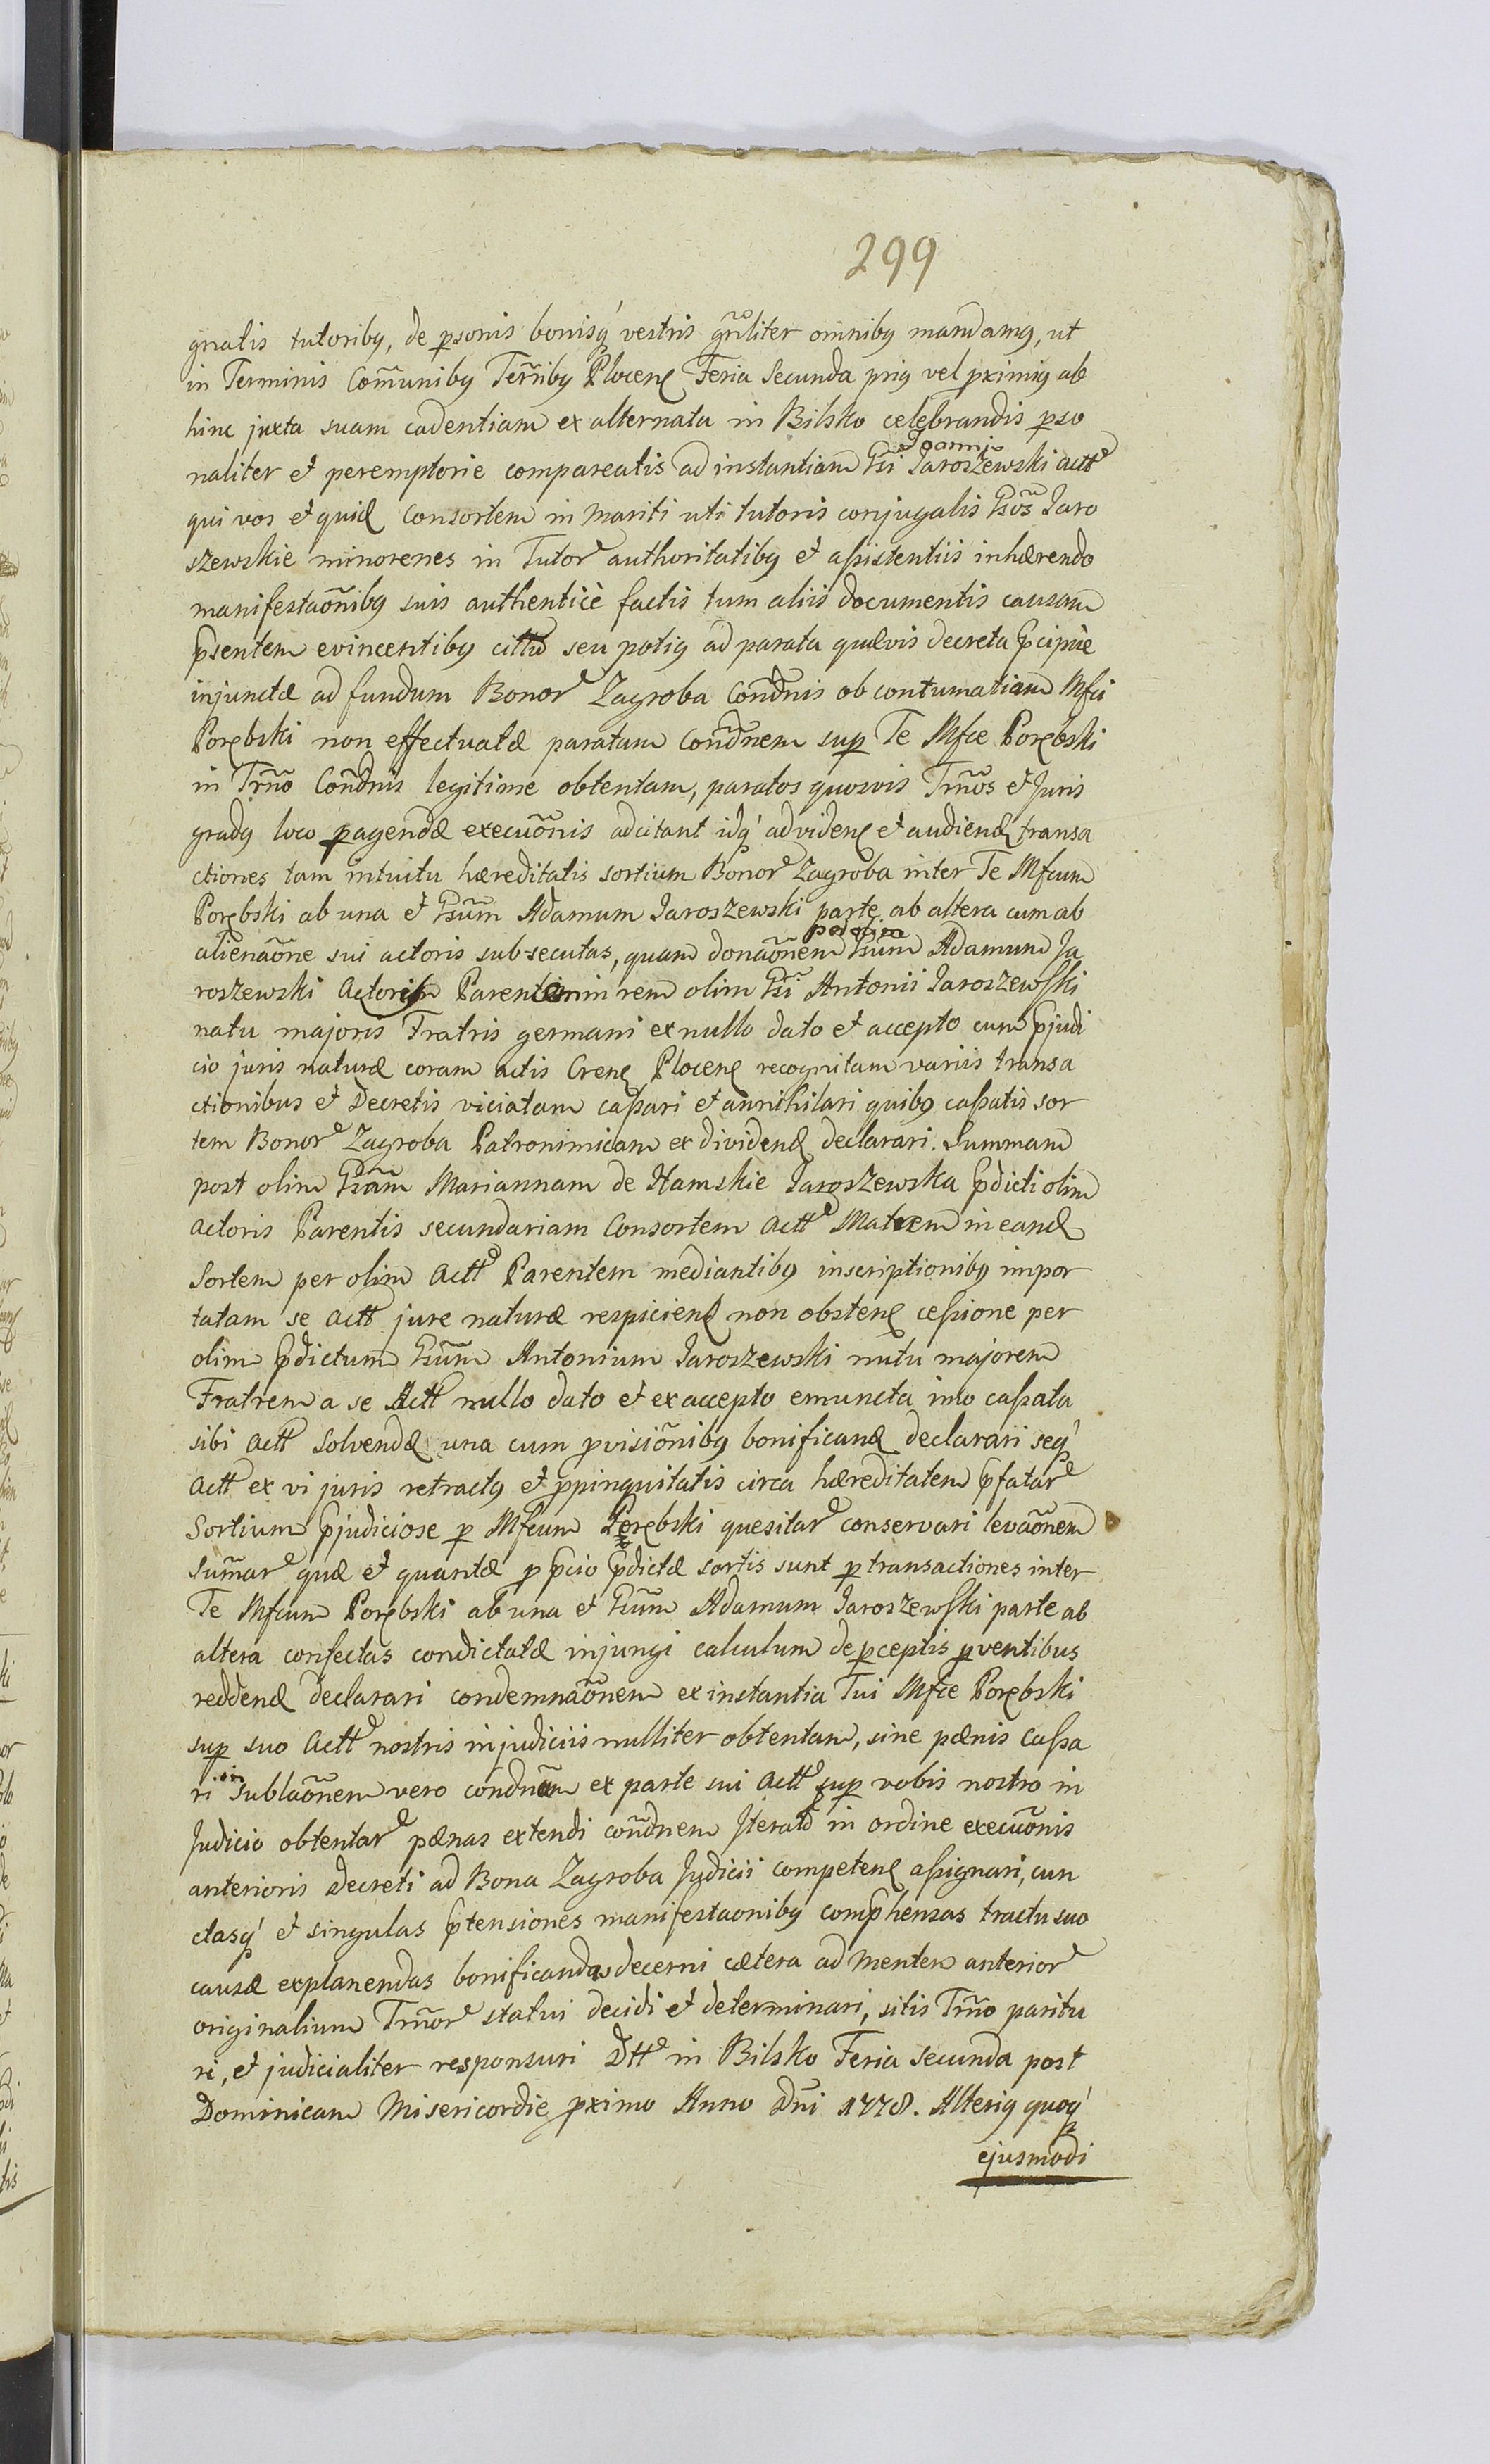 299
gnatis tutoribꝯ, de psonis bonisq́ vestris gñrliter omnibꝯ mandamꝯ, ut
in Terminis Com̃unibꝯ Terr̃ibꝯ Plocenꝭ Feria Secunda priꝯ vel pximiꝯ ab
hinc juxta suam cadentiam ex alternata in Bilsko celebrandis pso
Joannis
naliter et peremptorie compareatis ad instantiam Gsi Jaroszewski actt
qui vos et quidꝭ Consortem in Mariti uti tutoris conjugalis Gsos̃ Jaro
szewskie minorenes in Tutorꝭ authoritatibꝯ et assistentiis inhærendo
manifestaõnibꝯ suis authenticè factis tum aliis documentis causam
psentem evincentibꝯ cittꝭ seu potiꝯ ad parata quævis decreta pcipuè
injunctæ ad fundum Bonorꝭ Zagroba Cond̃nis ob contumatiam Mfci
Porębski non effectuatæ paratam Cond̃nem sup Te Mfce Porębski
in Trño Coñdnis legitime obtentam, paratos quosvis Trños et Juris
gradꝯ loco pagendæ execuõnis adcitant idq́ ad videnꝭ et audiendꝭ transa
ctiones tam intuitu hæreditatis sortium Bonorꝭ Zagroba inter Te Mfcum
Porębski ab una et Gsum̃ Adamum Jaroszewski parte ab altera cum ab
alienaõne sui actoris subsecutas, quam donaõnem Gsum̃ Adamum Ja
roszewski Actoris Parentem in rem olim Gsĩ Antonii Jaroszewski
natu majoris Fratris germani ex nullo dato et accepto cum pjudi
cio juris naturæ coram actis Crenꝭ Plocenꝭ recognitam variis transa
ctionibus et Decretis viciatam cassari et annihilari quibꝯ cassatis sor
tem Bonorꝭ Zagroba Patronimicam ex dividendꝭ declarari. Summam
post olim Gsam̃ Mariannam de Hamskie Jaroszewska pdicti olim
actoris Parentis secundariam Consortem Acttꝭ Matrem in eandꝭ
Sortem per olim Acttꝭ Parentem mediantibꝯ inscriptionibꝯ impor
tatam se Actt jure naturæ respiciendꝭ non obstenꝭ cessione per
olim pdictum Gsum̃ Antonium Jaroszewski nutu majorem
Fratrem a se Actt nullo dato et ex accepto emuncta imo cassata
sibi Actt Solvendæ una cum pvisiõnibꝯ bonificandꝭ declarari seq́
Actt ex vi juris retractꝯ et ppinquitatis circa hæreditatem pfatarꝭ
Sortium pjudiciose p Mfcum Porębski quesitarꝭ conservari levaõnem
Sum̃arꝭ quæ et quantæ p pcio pdictæ sortis sunt p transactiones inter
Te Mfcum Porębski ab una et Gsum̃ Adamum Jaroszewski parte ab
altera confectas condictatæ injungi calculum de pceptis pventibus
reddendꝭ declarari condemnaõnem ex instantia Tui Mfce Porębski
sup suo Acttꝭ nostris in judiciis nulliter obtentam, sine pænis Cassa
ri in sublaõnem vero condnam̃ ex parte sui Acttꝭ sup vobis nostro in
Judicio obtentarꝭ pænas extendi coñdnem Iteratꝭ in ordine execuõnis
anterioris Decreti ad Bona Zagroba Judicii competenꝭ assignari, cun
ctasq́ et singulas ptensiones manifestaonibꝯ comphensas tractu suo
causæ explanendas bonificandas decerni cætera ad mentem anteriorꝭ
originalium Trñorꝭ statui decidi et determinari, sitis Trño paritu
ri, et judicialiter responsuri Dttꝭ in Bilsko Feria Secunda post
Dominicam Misericordie pximo Anno Dñi 1778. Alteriꝯ quoq́
ejusmodi